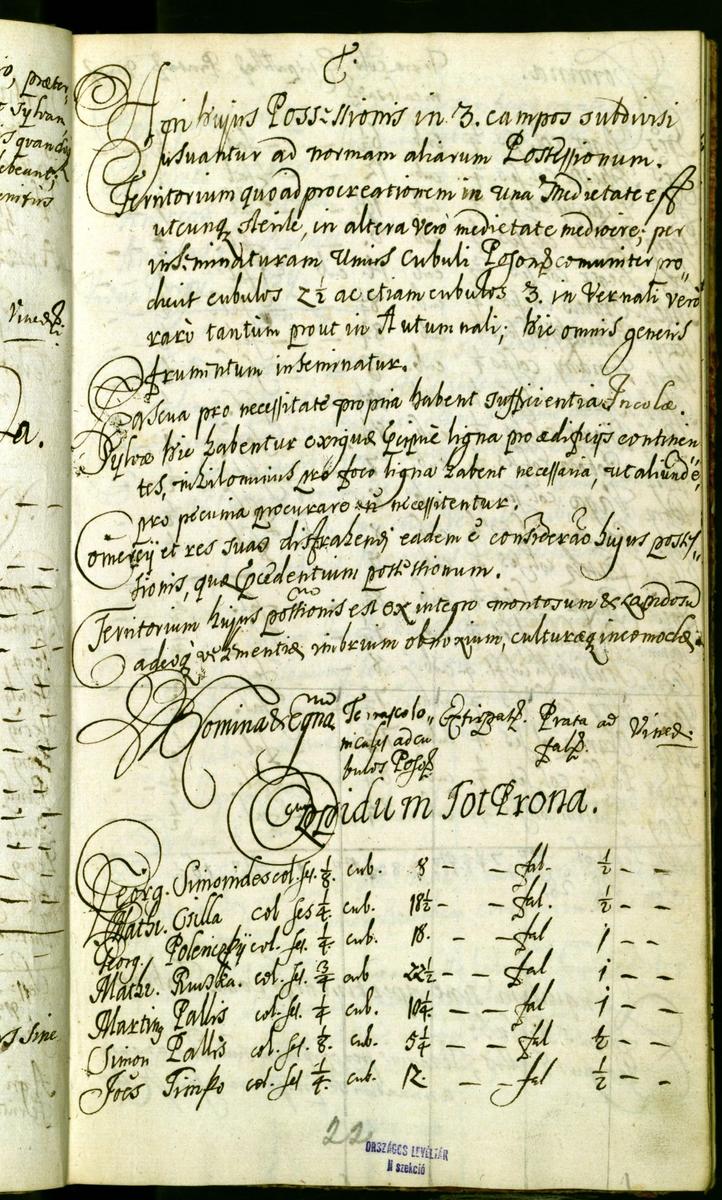 Agri hujus Possessionis in 3. campos subdivisi
usuantur ad normam aliarum Possessionum.
Territorium quoad procreationem in una Medietate est
utcunq sterile, in altera verò medietate mediocre; per
inseminaturam Unius Cubuli Poson comuniter pro„
ducit cubulos 2½ ac etiam cubulos 3. in Vernali verò
rarò tantùm prout in Autumnali; hic omnis generis
frumentum inseminatur.
Pascua pro necessitate propria habent sufficientia Incolæ.
Sylvæ hic habentur exiguæ ligna pro ædificijs continen„
tes, nihilominus pro foco ligna habent necessaria, ut aliunde
pro pecunia procurare necessitentur.
Comercij et res suas distrahendi eadem è consideraõ hujus posses„
sionis, quæ præcedentium possessionum.
Territorium hujus possionis est ex integro montosum & lapidosu
adeoq vehementiæ imbrium obnoxium, culturæq incomodæ.
Nomina & Cogna
Terræ colo„
nicales ad cu
bulos Poson
Extirpat.
Prata ad
falc.
Vineæ.
Oppidum Tot Prona.
Georg. Simonides col. ses. ⅛ cub. 8 - - fal. ½ - -
Math. Csilla col ses ¼ cub. 18½ - - fal. ½ - -
Georg. Polenczkÿ col. ses. ¼ cub. 18. - - fal 1 - -
Math. Ruska. col. ses. ¾ cub 22½ - - fal 1 - -
Martinq Pallis col. ses. ¼ cub. 10¼ - - fal 1 - -
Simon Pallis col. ses. ⅛. cub. 5¼ - - fal ½ - -
Joes Timko col. ses ¼. cub. 12. - - fal ½ - -
22
ORSZÁGOS LEVÉLTÁR
II szekció